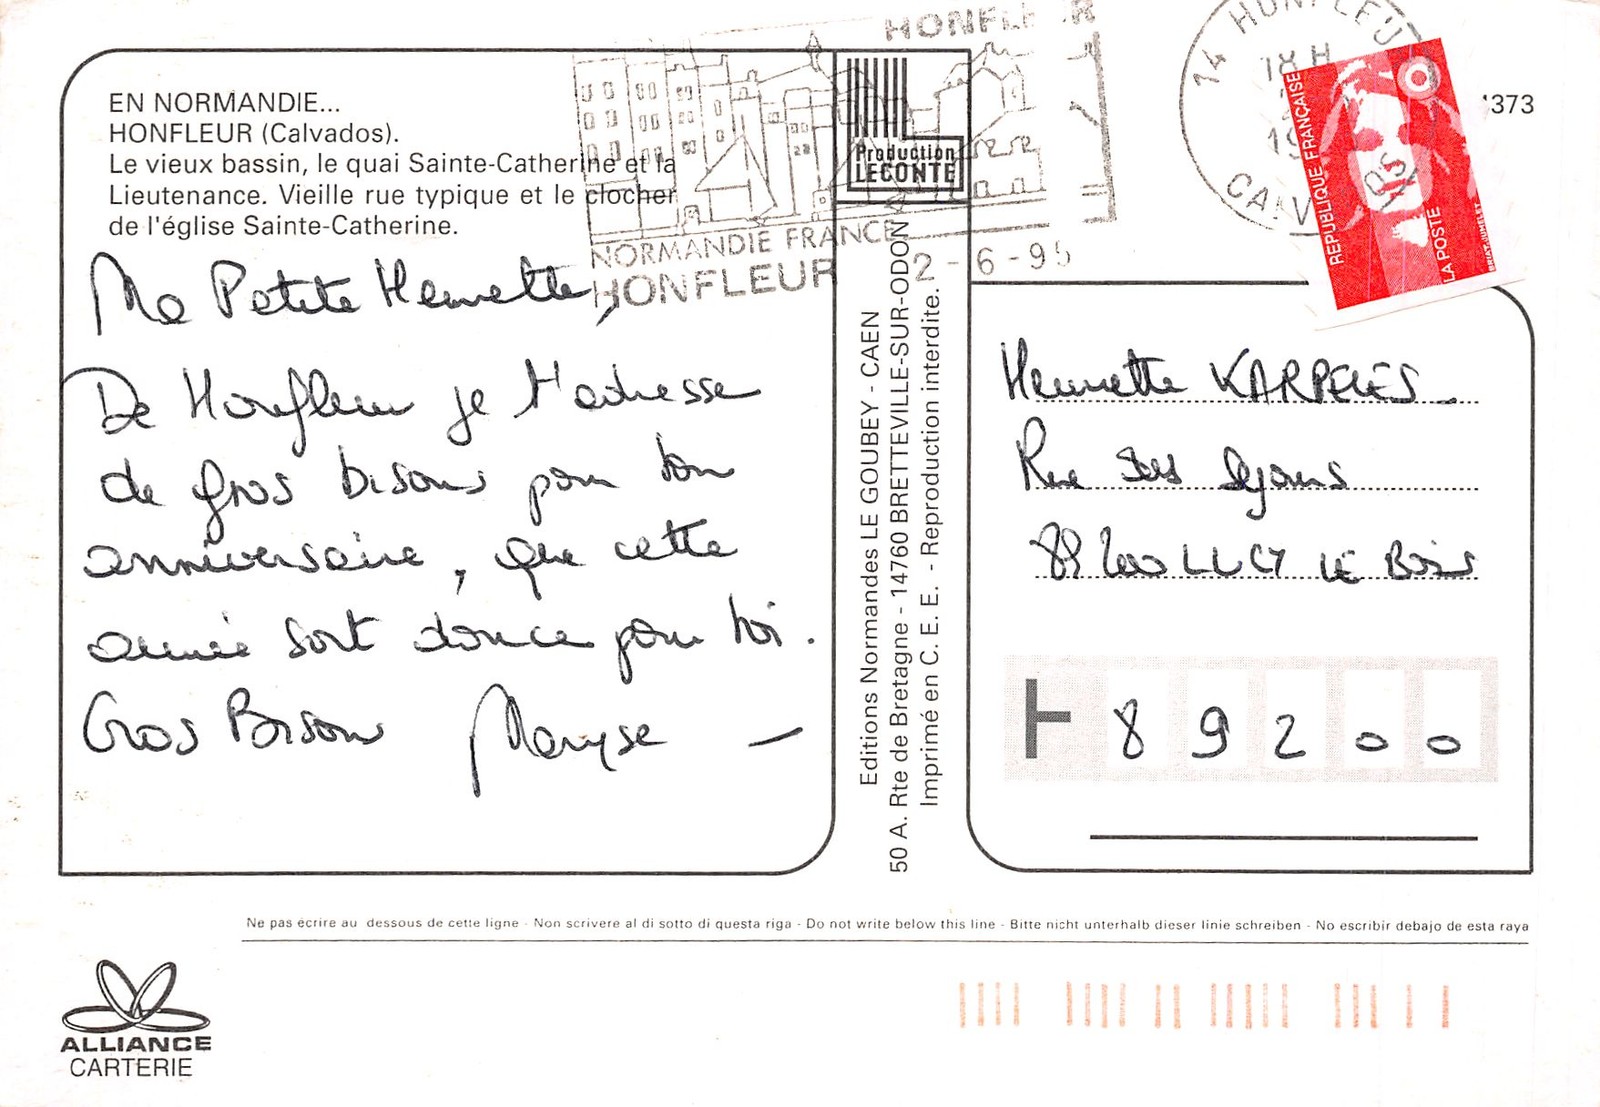 HONFLEUR
14 HONFLEUR
18 H
CALVADOS
EN NORMANDIE...
HONFLEUR (Calvados).
Le vieux bassin, le quai Sainte-Catherine et la
Lieutenance. Vieille rue typique et le clocher
de l'église Sainte-Catherine.
Production
LECONTE
RÉPUBLIQUE FRANÇAISE
LA POSTE
BRIAT-JUMELET
373
NORMANDIE FRANCE
HONFLEUR
2-6-95
Ma Petite Henriette,
De Honfleur je t'adresse
de gros bisous pour ton
anniversaire, que cette
année soit douce pour toi.
Gros Bisous Maryse —
Editions Normandes LE GOUBEY - CAEN
50 A. Rte de Bretagne - 14760 BRETTEVILLE-SUR-ODON
Imprimé en C. E. E. - Reproduction interdite.
Henriette KARPELES
Rue des
89200 LUCY LE BOIS
89200
Ne pas écrire au dessous de cette ligne - Non scrivere al di sotto di questa riga - Do not write below this line - Bitte nicht unterhalb dieser linie schreiben - No escribir debajo de esta raya
ALLIANCE
CARTERIE